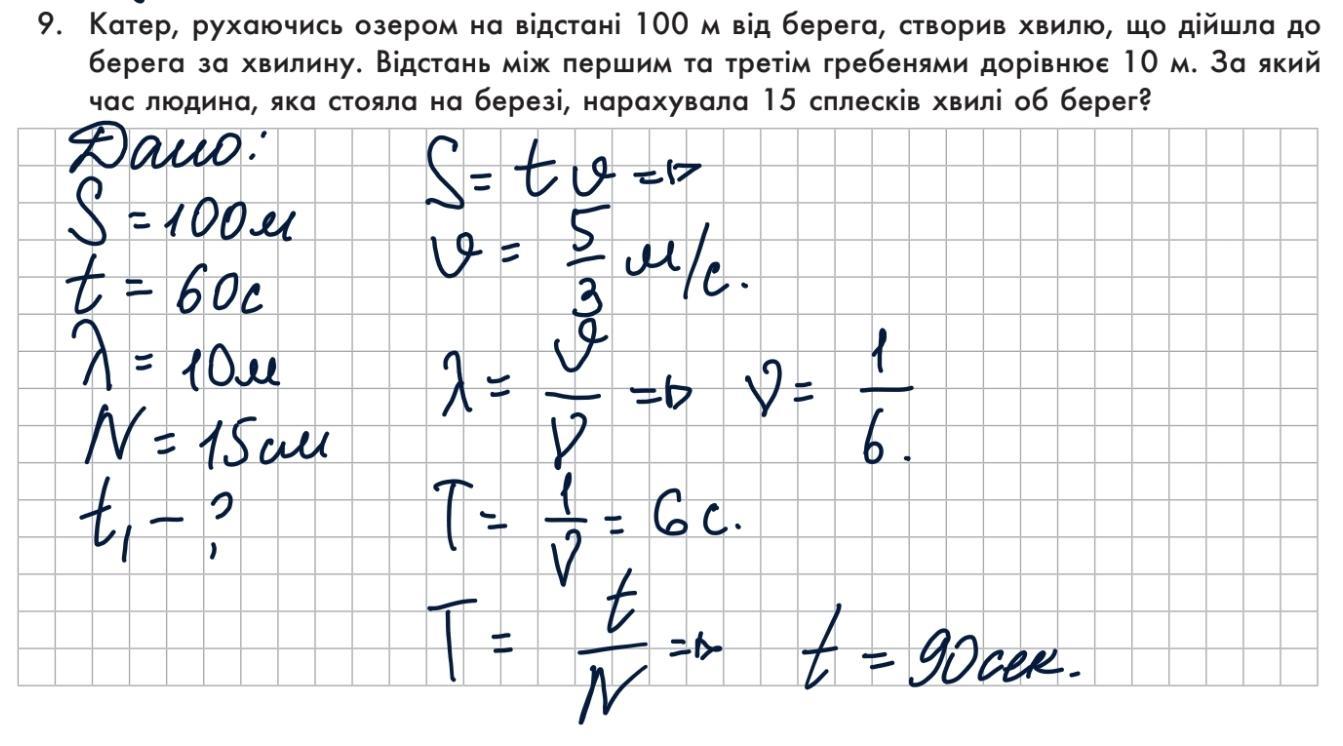 9. Катер, рухаючись озером на відстані 100 м від берега, створив хвилю, що дійшла до
берега за хвилину. Відстань між першим та третім гребенями дорівнює 10 м. За який
час людина, яка стояла на березі, нарахувала 15 сплесків хвилі об берег?
Дано:
S = 100м
t = 60с
λ = 10м
N = 15см
t₁ - ?
S = t υ =>
υ = 5/3 м/с.
λ = υ/ν => ν = 1/6.
T = 1/ν = 6с.
T = t/N => t = 90сек.